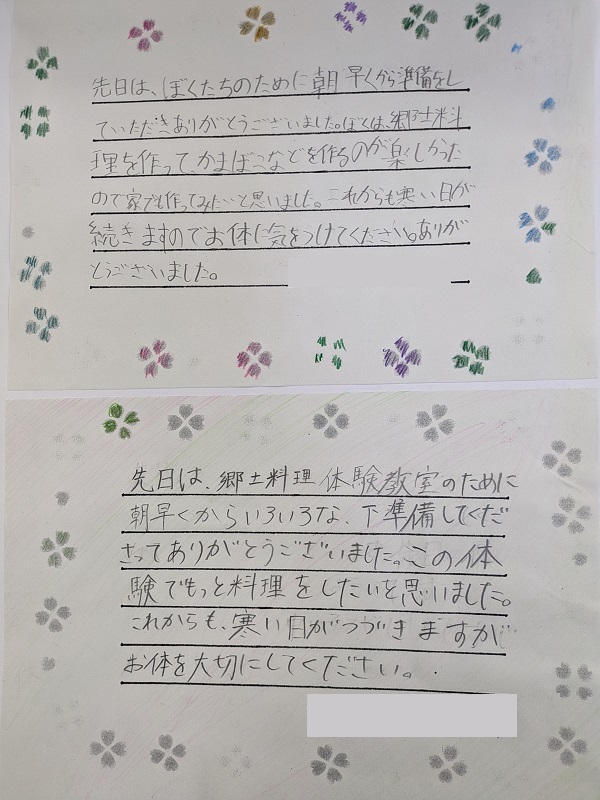 先日は、ぼくたちのために朝早くから準備をし
ていただきありがとうございました。ぼくは、郷土料
理を作って、かまぼこなどを作るのが楽しかった
ので家でも作ってみたいと思いました。これからも寒い日が
続きますのでお体に気をつけてください。ありが
とうございました。
先日は、郷土料理体験教室のために
朝早くからいろいろな、下準備してくだ
さってありがとうございました。この体
験でもっと料理をしたいと思いました。
これからも、寒い日がつづきますが
お体を大切にしてください。